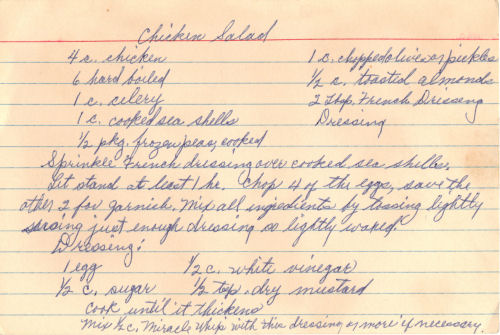 Chicken Salad
4 c. chicken
6 hard boiled
1 c. celery
1 c. cooked sea shells
1/2 pkg. frozen peas, cooked
1 c. chopped olives or pickles
1/2 c. toasted almonds
2 tbsp. French Dressing
Dressing
Sprinkle French dressing over cooked sea shells.
Let stand at least 1 hr. Chop 4 of the eggs, save the
other 2 for garnish. Mix all ingredients by tossing lightly
using just enough dressing so lightly
Dressing:
1 egg
1/2 c. white vinegar
1/2 c. sugar
1/2 tsp. dry mustard
Cook until it thickens
Mix 1/2 c. Miracle Whip with this dressing or more if necessary